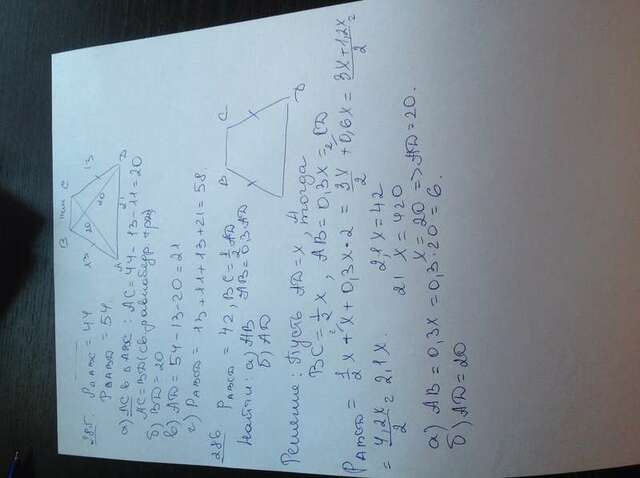 285. P△ABC = 44
P△ABD = 54.
B 11 см C
13 20 20 13
A 21 D
а) AC в △ABC: AC = 44 - 13 - 11 = 20
AC = BD (св. равнобедр. трап)
б) BD = 20
в) AD = 54 - 13 - 20 = 21
г) PABCD = 13 + 11 + 13 + 21 = 58.
286 PABCD = 42, BC = 1/2 AD
AB = 0,3 AD
Найти: а) AB
б) AD
B C
A D
Решение: Пусть AD = x, тогда
BC = 1/2 x, AB = 0,3x = CD
PABCD = 1/2 x + x + 0,3x · 2 = 3x/2 + 0,6x = 3x + 1,2x / 2 =
= 4,2x/2 = 2,1x.
2,1x = 42
21x = 420
x = 20 => AD = 20.
а) AB = 0,3x = 0,3 · 20 = 6.
б) AD = 20